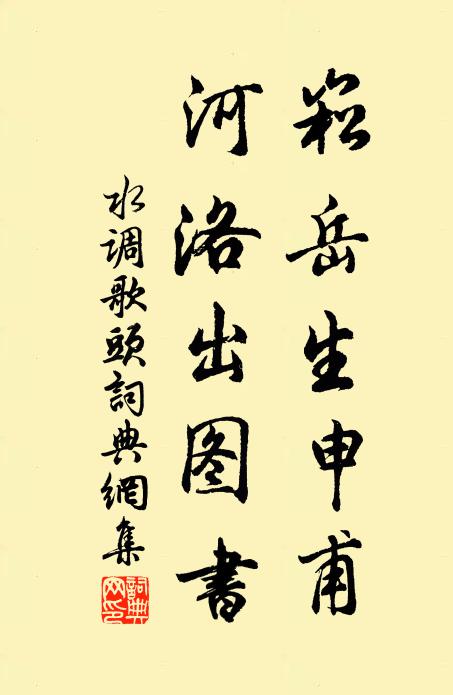 崧岳生申甫
河洛出图書
水调歌頭詞典網集
詞典网印